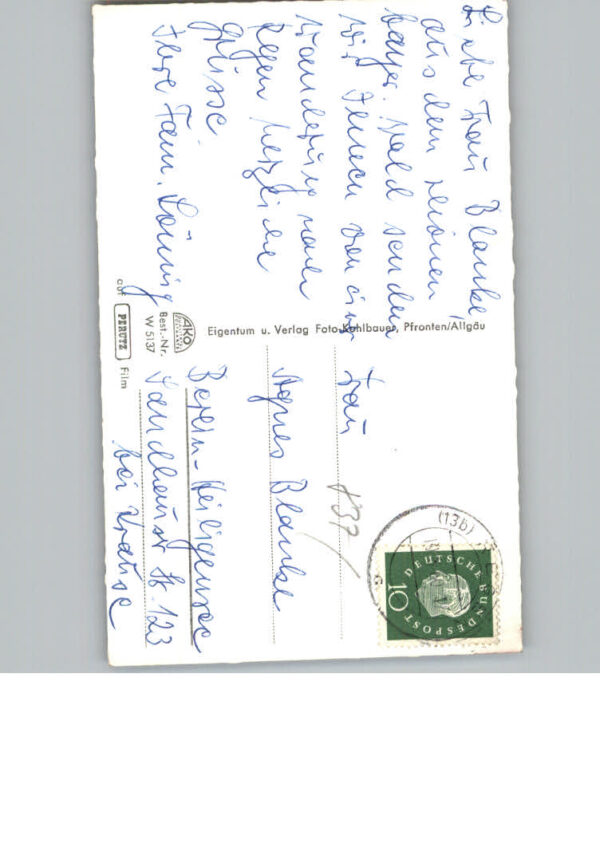 Liebe Frau Blanke!
aus dem schönen
bayr. Wald senden
wir Ihnen von einer
Wanderung nach
Regen herzliche
Grüsse
Ihre Fam. Löning
Eigentum u. Verlag Foto-Kohlbauer, Pfronten/Allgäu
AKO
Best.-Nr.
W 5137
auf PERUTZ Film
Frau
Agnes Blanke
Berlin-Heiligensee
Sandhauser Str. 123
bei Krause
837
(13b)
DEUTSCHE BUNDESPOST
10